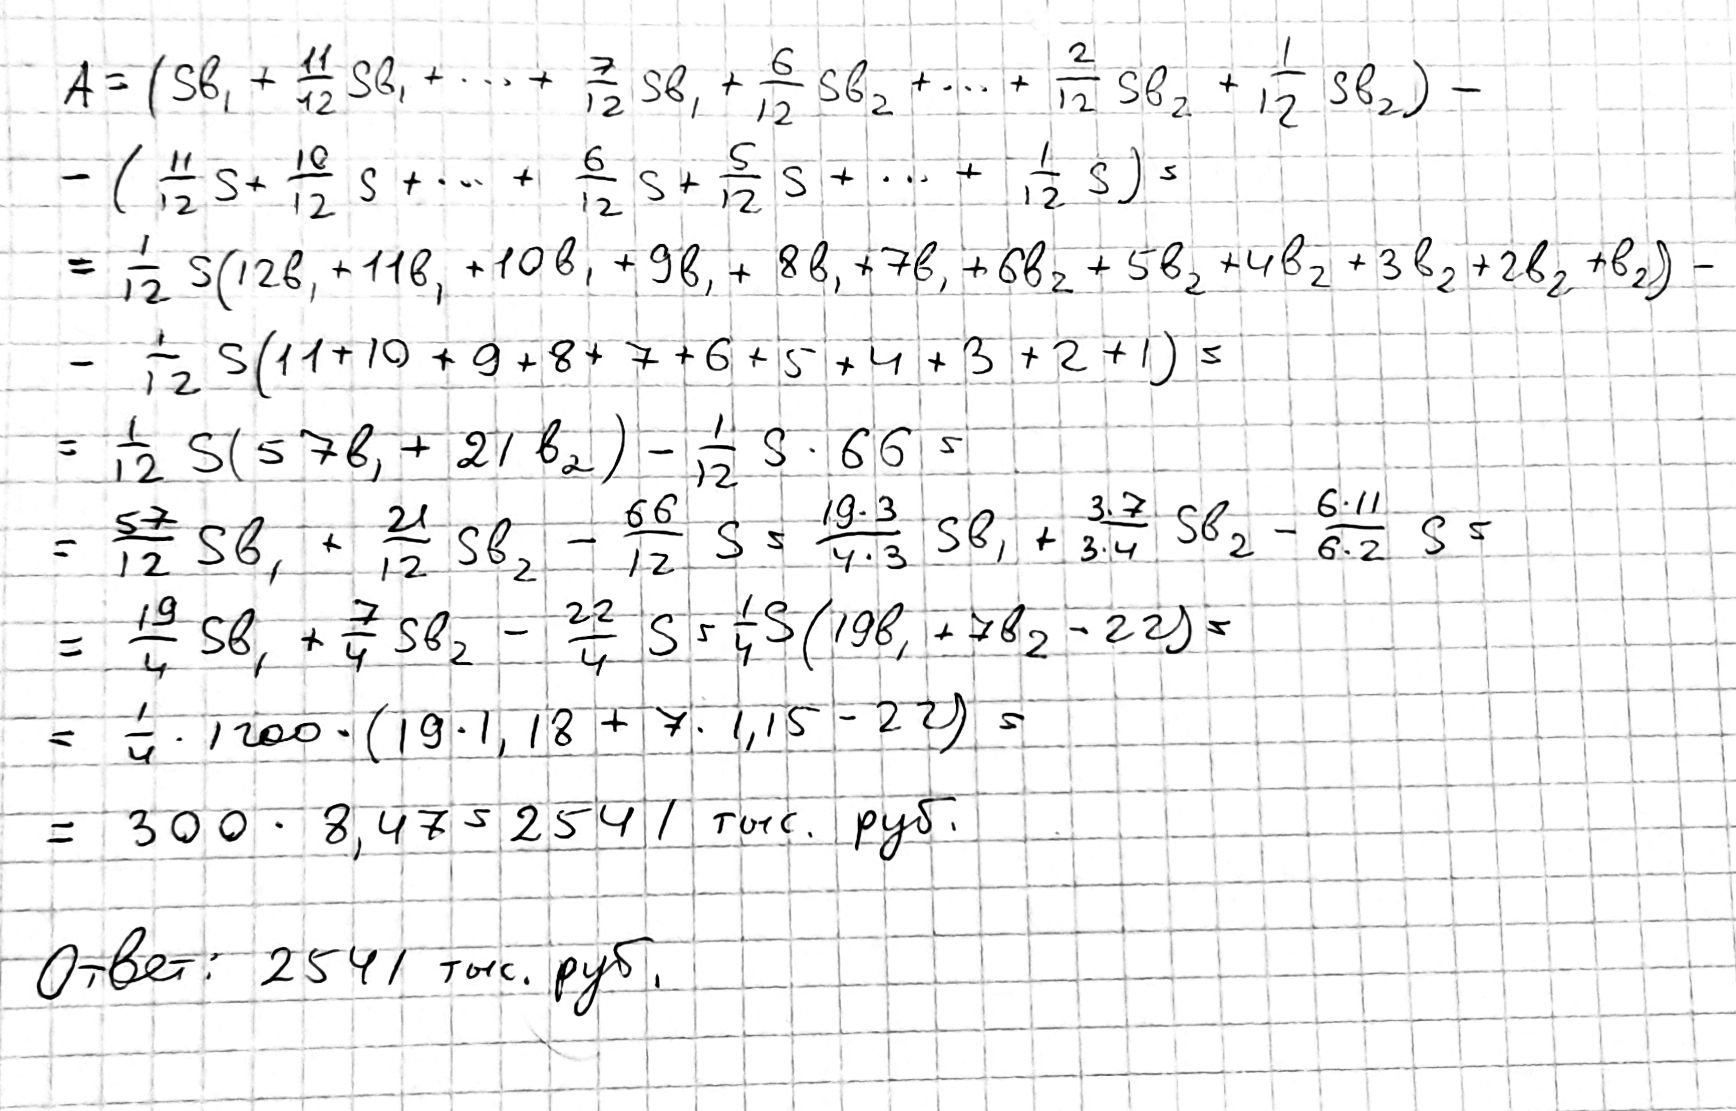 A = (Sb₁ + 11/12 Sb₁ + ... + 7/12 Sb₁ + 6/12 Sb₂ + ... + 2/12 Sb₂ + 1/12 Sb₂) -
- (11/12 S + 10/12 S + ... + 6/12 S + 5/12 S + ... + 1/12 S) =
= 1/12 S(12b₁ + 11b₁ + 10b₁ + 9b₁ + 8b₁ + 7b₁ + 6b₂ + 5b₂ + 4b₂ + 3b₂ + 2b₂ + b₂) -
- 1/12 S(11 + 10 + 9 + 8 + 7 + 6 + 5 + 4 + 3 + 2 + 1) =
= 1/12 S(57b₁ + 21b₂) - 1/12 S · 66 =
= 57/12 Sb₁ + 21/12 Sb₂ - 66/12 S = 19·3/4·3 Sb₁ + 3·7/3·4 Sb₂ - 6·11/6·2 S =
= 19/4 Sb₁ + 7/4 Sb₂ - 22/4 S = 1/4 S(19b₁ + 7b₂ - 22) =
= 1/4 · 1200 · (19 · 1,18 + 7 · 1,15 - 22) =
= 300 · 8,47 = 2541 тыс. руб.
Ответ: 2541 тыс. руб.